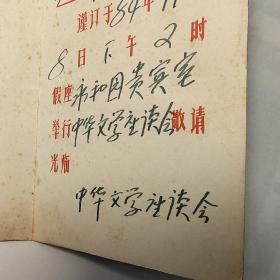 谨订于84年11
8日下午2时
假座永和园贵宾室
举行中华文学座谈会敬请
光临
中华文学座谈会